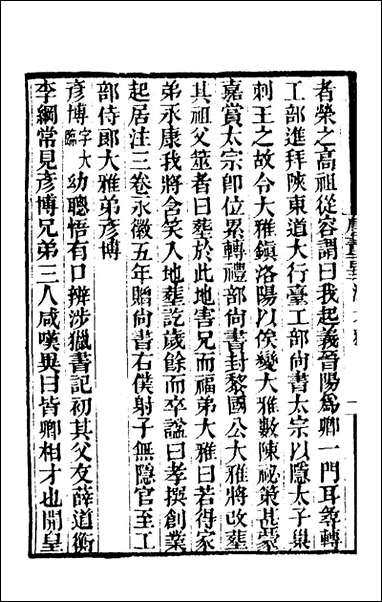 者榮之高祖從容謂曰我起義晉陽爲卿一門耳尋轉
工部進拜陝東道大行臺工部尚書太宗以隱太子巢
刺王之故令大雅鎮洛陽以俟變大雅數陳祕策甚蒙
嘉賞太宗即位累轉禮部尚書封黎國公大雅將改葬
其祖父筮者曰葬於此地害兄而福弟大雅曰若得家
弟永康我將含笑入地葬訖歲餘而卒諡曰孝撰創業
起居注三卷永徽五年贈尚書右僕射子無隱官至工
部侍郎大雅弟彦博
彦博字大臨幼聰悟有口辨涉獵書記初其父友薛道衡
李綱常見彦博兄弟三人咸嘆異曰皆卿相才也開皇